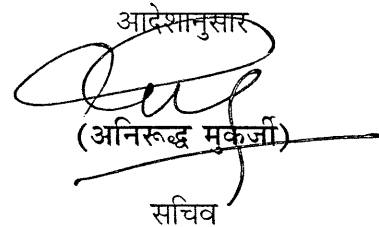 आदेशानुसार
(अनिरूद्ध मुकर्जी)
सचिव